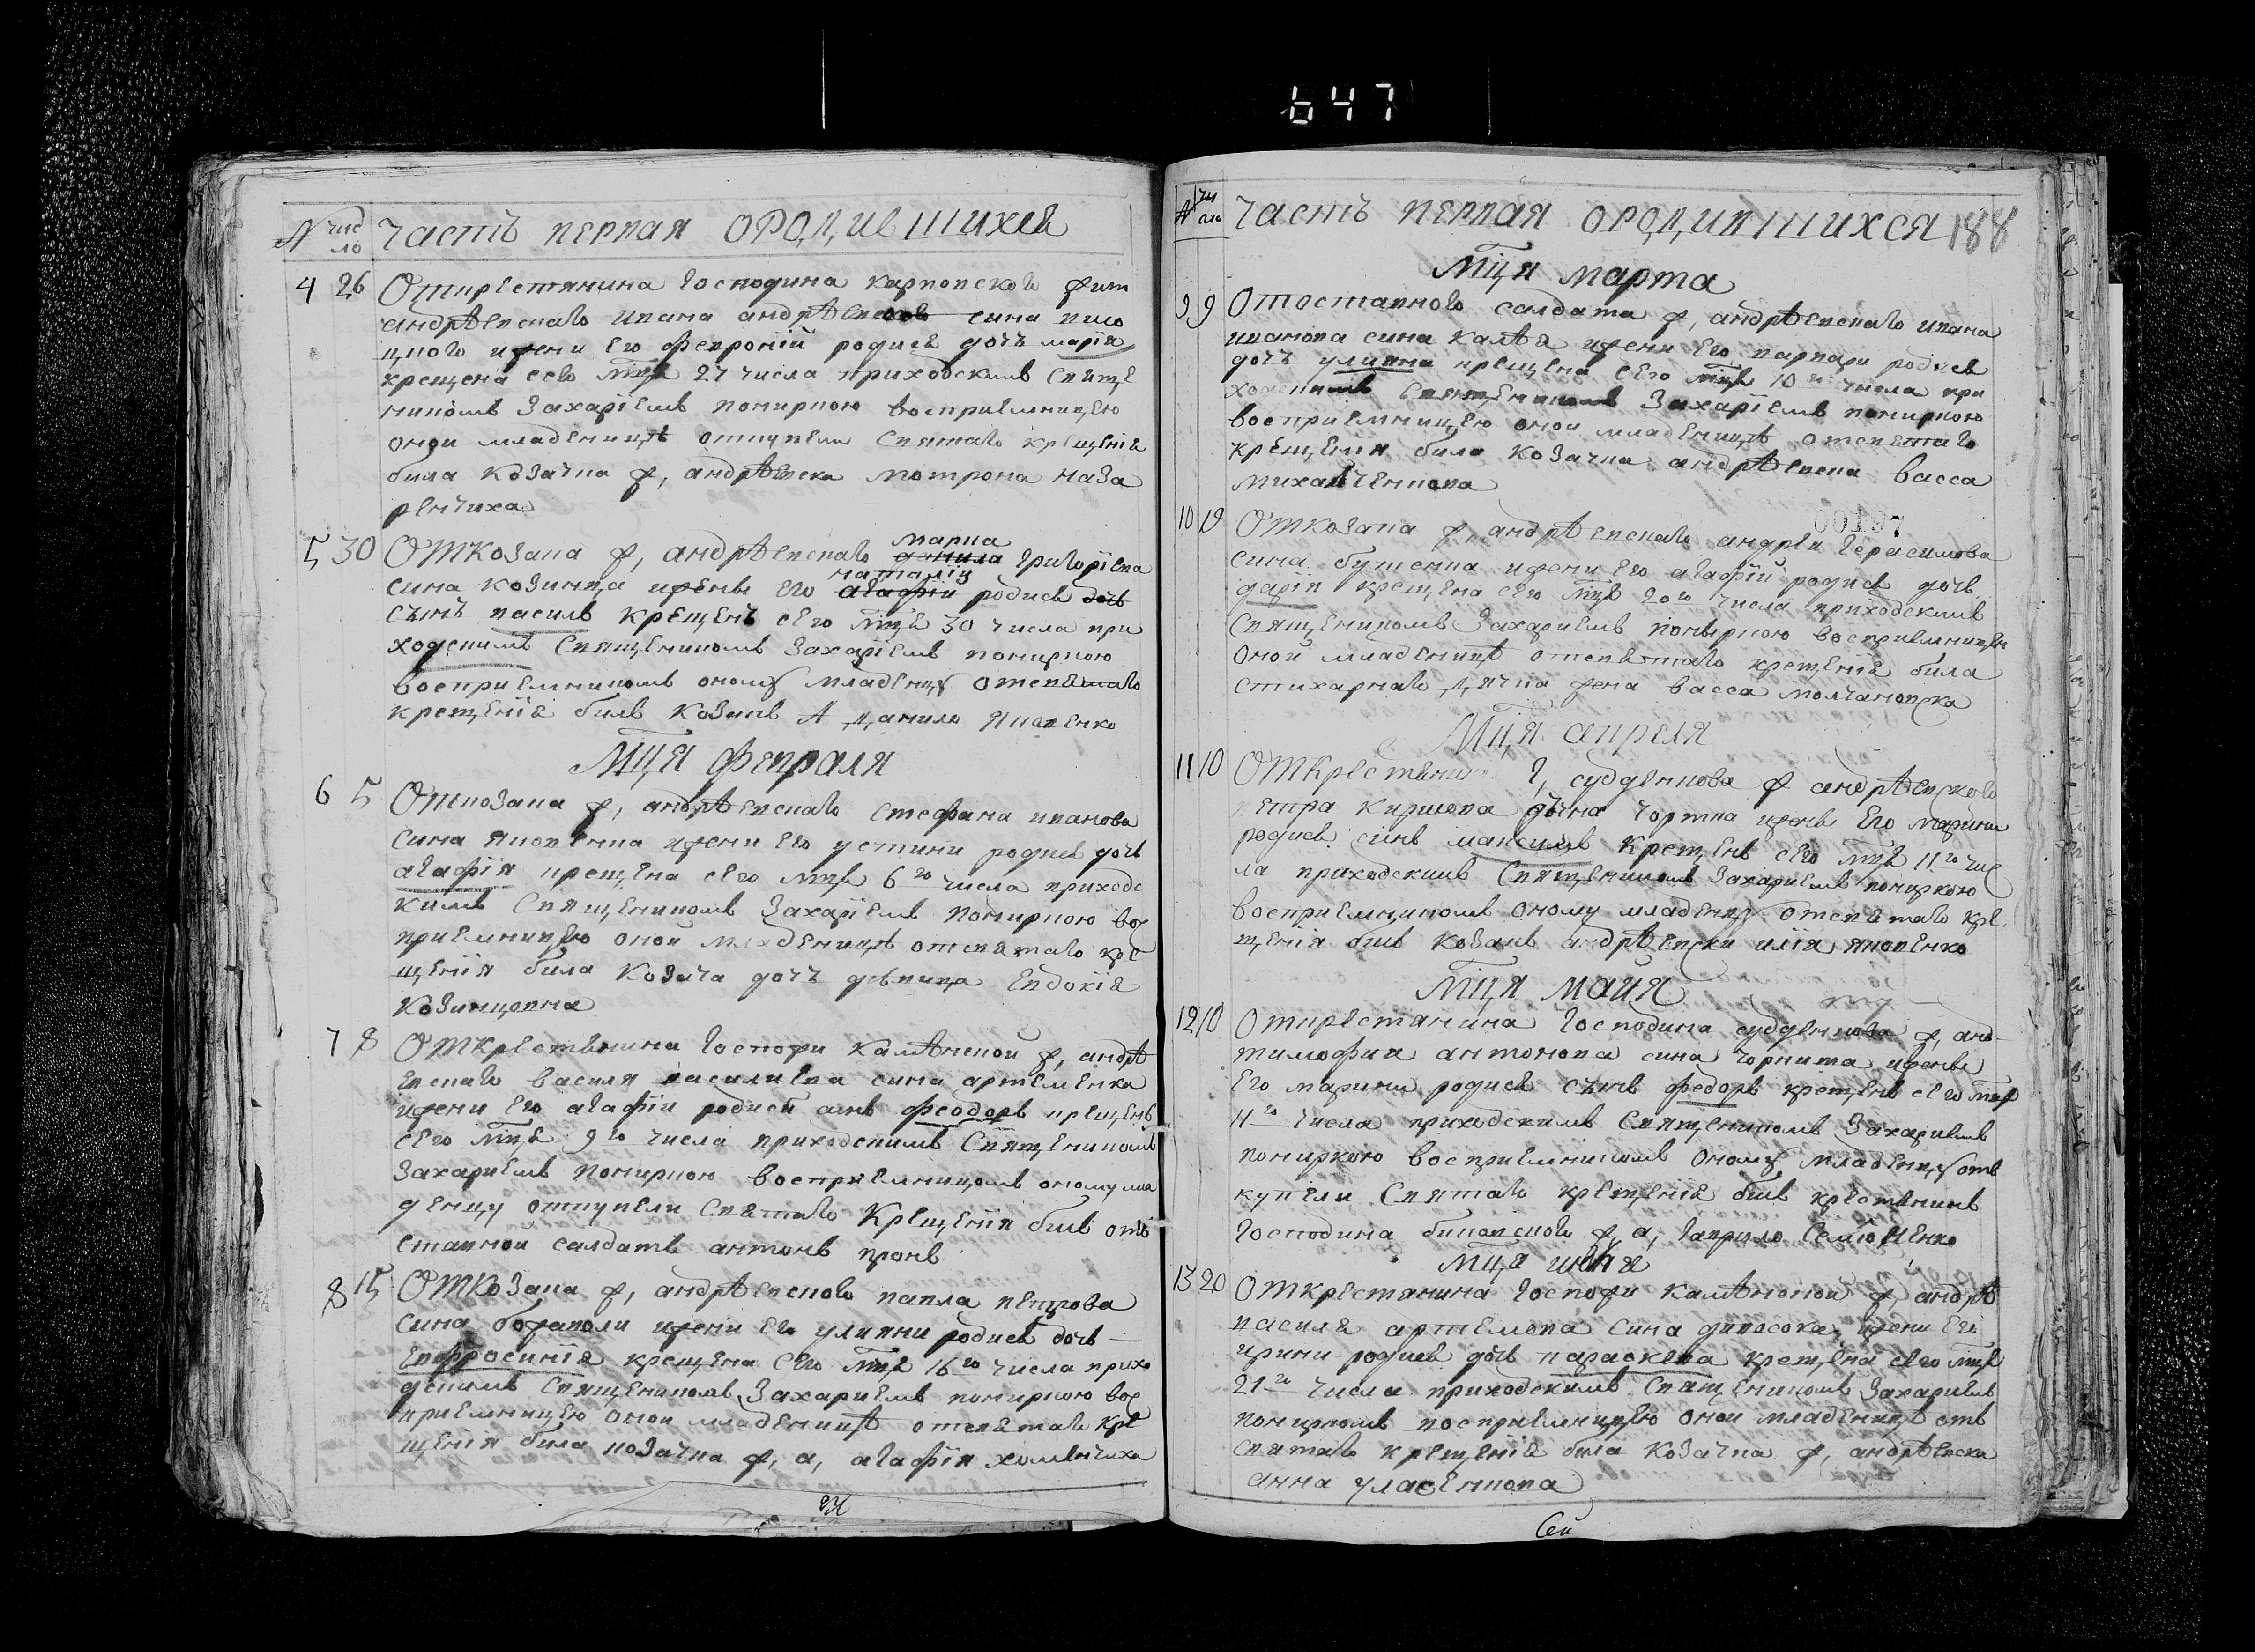 647
№ число Часть первая ородившихся
4 26 Открестянина Господина карповского ф жит
андрѣевскаго ивана андрѣевского сина
цного ижени его февроній родися дочъ марія
крещена сего мца 27 числа приходскимъ Свяще
никомъ Захаріемъ помирною восприемницею
оной младеницѣ откупели Святаго крещенія
била козачка ф, андрѣевска мотрона наза
ренчиха
марка
5 30 Откозака ф, андрѣевскаго данила григоріева
наталіи
сина козинца иженъ его агафіи родися дочъ
сынъ василь крещенъ сего мца 30 числа при
ходскимъ Священикомъ Захаріемъ помирною
восприемникомъ оному младенцу отсвятаго
крещенія билъ козакъ А данило яковенко
Мця февраля
6 5 Откозака ф, андрѣевскаго стефана иванова
сина яковенка ижени его устини родися дочъ
агафія крещена сего мца 6го числа приходс
кимъ Священикомъ Захаріемъ помирною вос
приемницею оной младеницѣ отсвятаго кре
щенія била козача дочъ девица Евдокія
козинцовна
7 8 Открестянина госпожи калѣнской ф, андрѣ
евскаго василя василиева сина артеменка
ижени его агафіи родися синъ феодоръ крещенъ
сего мця 9го числа приходскимъ Священикомъ
Захариемъ помирною восприемникомъ оному мла
денцу откупели Святаго Крещенія билъ отъ
ставной салдатъ антонъ
8 15 Откозака ф, андрѣевского павла петрова
сина ижени его улияни родися дочъ
Евфросинія крещена сего мця 16го числа прихо
дскимъ Священикомъ Захариемъ помирною вос
приемницею оной младеницѣ отсвятаго кре
щенія била козачка ф, а, агафія хоменчиха
№ число Часть первая ородившихся 188
Мця марта
9 9 Отоставного салдата ф, андрѣевскаго ивана
иванова сина ижени его варвари родися
дочъ улияна крещена сего мця 10го числа при
ходскимъ Священикомъ Захаріемъ помирною
восприемницею оной младеницѣ отсвятаго
крещенія била козачка андрѣевска васса
10 19 Откозака ф, андрѣевскаго андрея герасимова
сина бутенка ижени его агафіи родися дочъ
дарія крещена сего мця 20го числа приходскимъ
Священикомъ Захариемъ помирною восприемницею
оной младеницѣ отсвятаго крещенія била
стихарнаго дячка жена васса молчановска
Мця апреля
11 10 Открестянина г, судденкова ф андрѣевского
петра кирилова сына чортка иженъ его марини
родися синъ максимъ крещенъ сего мця 11го чис
ла приходскимъ Священикомъ Захариемъ помиркою
восприемникомъ оному младенцу отсвятаго кре
щенія билъ козакъ андрѣевски илія яковенко
Мця майя
12 10 Открестянина господина судденкова ф, анд
тимофия антонова сина иженъ
его марини родися сынъ федоръ крещенъ сего мця
11го числа приходскимъ Священикомъ Захариемъ
помиркою восприемникомъ оному младенцу отъ
купели Святаго крещенія билъ крестянинъ
господина биковского ф, а, гаврило Семіоненко
мця июня
13 20 Открестянина госпожи калѣнской ф, андрѣ
василя артемова сина дикосока, ижени его
ирини родися дочъ параскева крещена сего мця
21го числа приходскимъ Священикомъ Захариемъ
помирномъ восприемницею оной младеницѣ отъ
святаго крещенія била козачка ф, андрѣевска
анна уласенкова
Сей